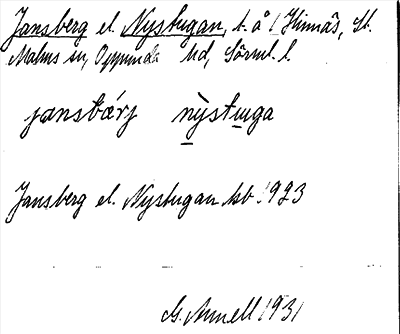 Jansberg el. Nystugan, t. å 1 Hinnäs, St.
Malms sn, Oppunda hd, Sörml. l.
jansbærj nỳstuga
Jansberg el. Nystugan hb 1923
G. Annell 1931